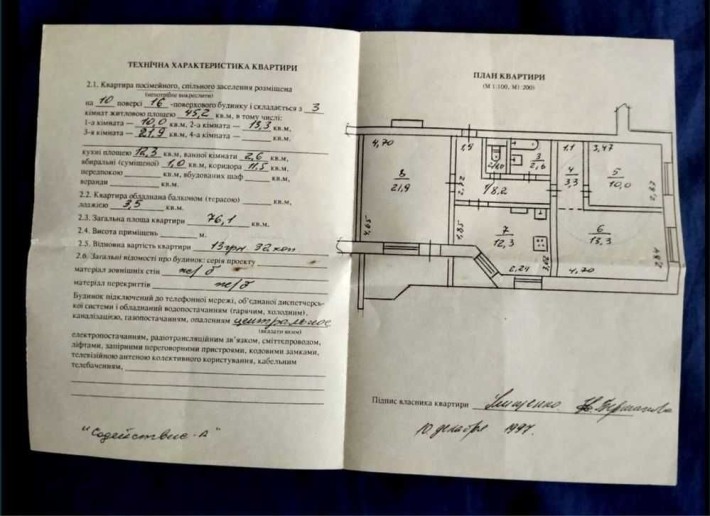 ТЕХНІЧНА ХАРАКТЕРИСТИКА КВАРТИРИ
2.1. Квартира посімейного, спільного заселення розміщена
(непотрібне викреслити)
на 10 поверсі 16 -поверхового будинку і складається з 3
кімнат житловою площею 45,2 кв.м, в тому числі:
1-а кімната — 10,0 кв.м, 2-а кімната — 13,3 кв.м,
3-я кімната — 21,9 кв.м, 4-а кімната — кв.м,
кухні площею 12,3 кв.м, ванної кімнати 2,6 кв.м,
вбиральні (суміщеної) 1,0 кв.м, коридора 11,5 кв.м,
передпокою кв.м, вбудованих шаф кв.м,
веранди кв.м.
2.2. Квартира обладнана балконом (терасою) кв.м,
лоджією 3,5 кв.м.
2.3. Загальна площа квартири 76,1 кв.м.
2.4. Висота приміщень м.
2.5. Відновна вартість квартири 13грн. 32 коп
2.6. Загальні відомості про будинок: серія проекту
матеріал зовнішніх стін ж/б
матеріал перекриттів ж/б
Будинок підключений до телефонної мережі, об'єднаної диспетчерсь-
кої системи і обладнаний водопостачанням (гарячим, холодним),
каналізацією, газопостачанням, опаленням центральное
(вказати який)
електропостачанням, радіотрансляційним зв'язком, сміттєпроводом,
ліфтами, запірними переговорними пристроями, кодовими замками,
телевізійною антеною колективного користування, кабельним
телебаченням,
"Содействие-А"
ПЛАН КВАРТИРИ
(М 1:100, М1:200)
4,70
8
21,9
4,65
1,9
3
2,6
8,2
4,85
7
12,3
2,24
1,1
4
3,3
3,47
5
10,0
6
13,3
2,84
4,70
Підпис власника квартири
10 декабря 1997.